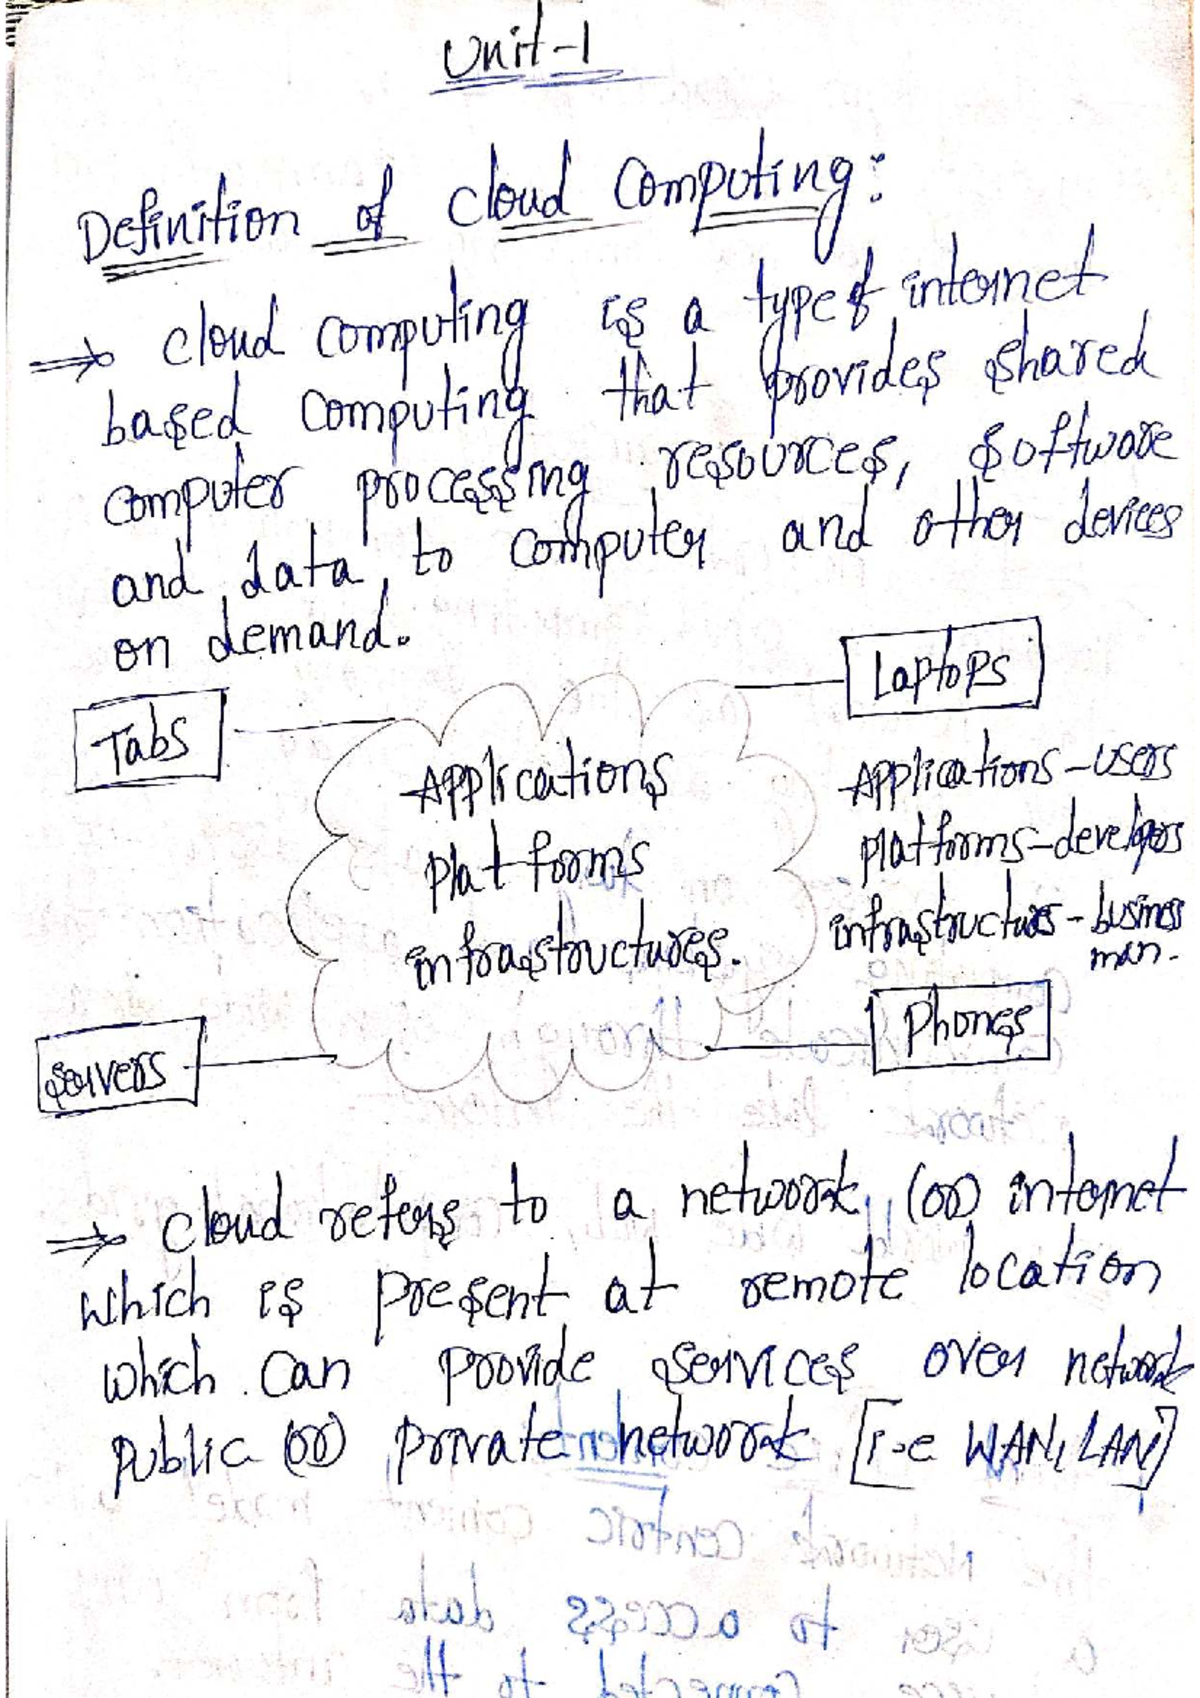 Unit-1
Definition of cloud computing:
⇒ cloud computing is a type of internet
based computing that provides shared
computer processing resources, software
and data, to computer and other devices
on demand.
Laptops
Tabs
Applications
platforms
infrastructures.
Applications-users
platforms-developers
infrastructures-business
man.
Phones
servers
⇒ cloud refers to a network, (or) internet
which is present at remote location
which can provide services over network
public (or) private network [i-e WAN, LAN]